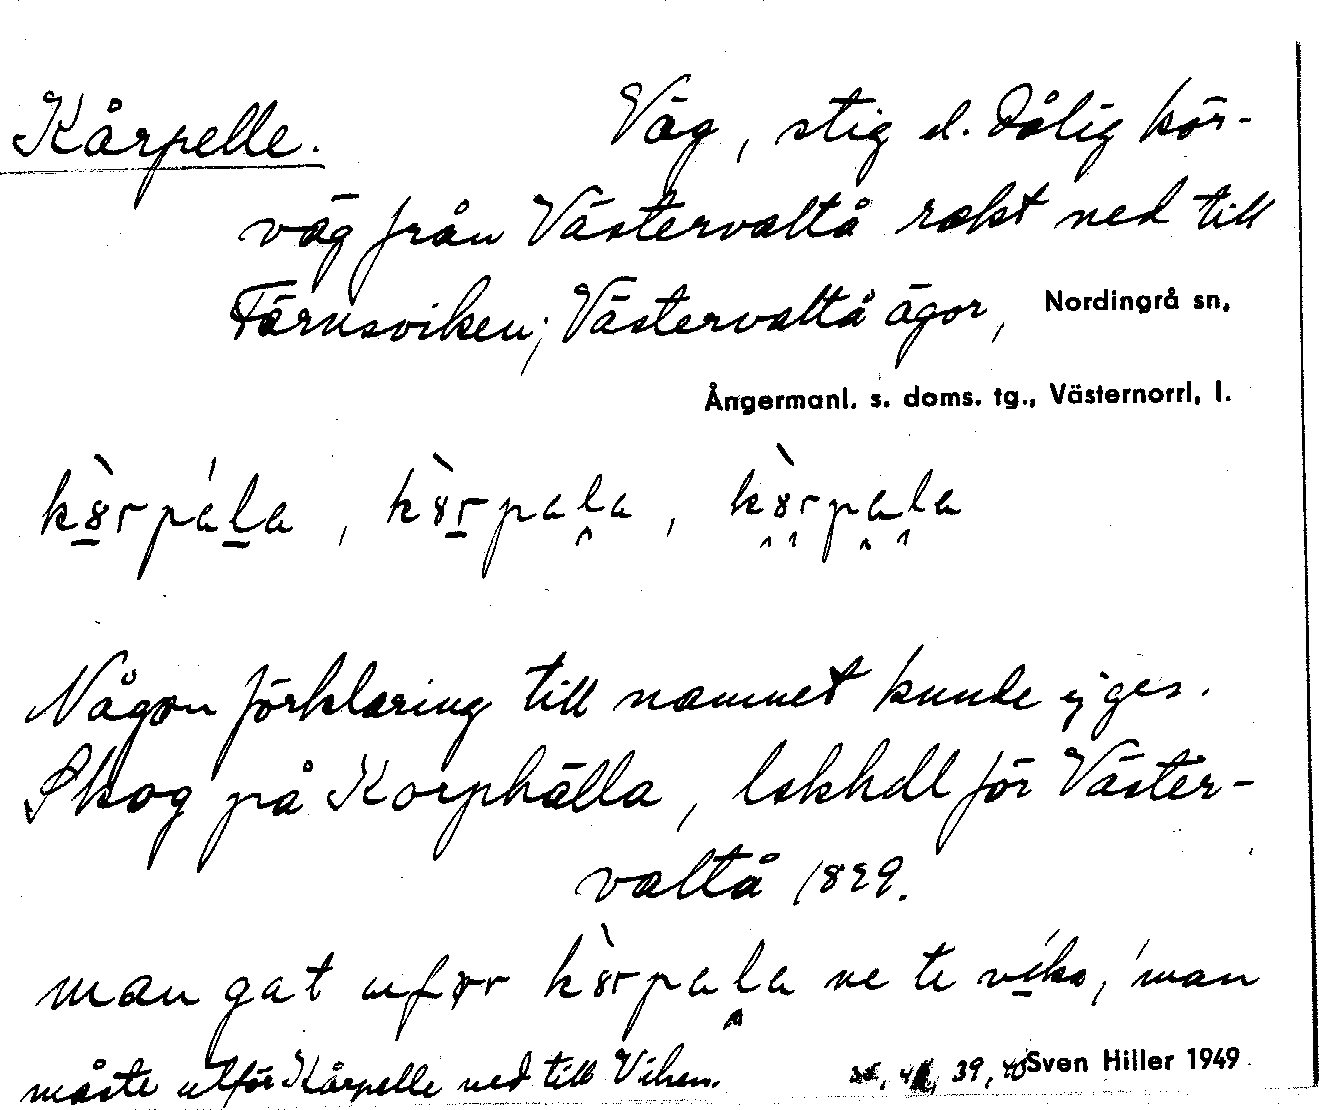 Kårpelle. Väg, stig el. dålig kör-
väg från Västervaltå rakt ned till
Färnsviken; Västervaltå ägor, Nordingrå sn,
Ångermanl. s. doms. tg., Västernorrl. l.
Någon förklaring till namnet kunde ej ges.
Skog på Korphälla, lskhdl för Väster-
valtå 1829.
man gat ne te man
måste utför Kårpelle ned till Viken. 39, 40 Sven Hiller 1949